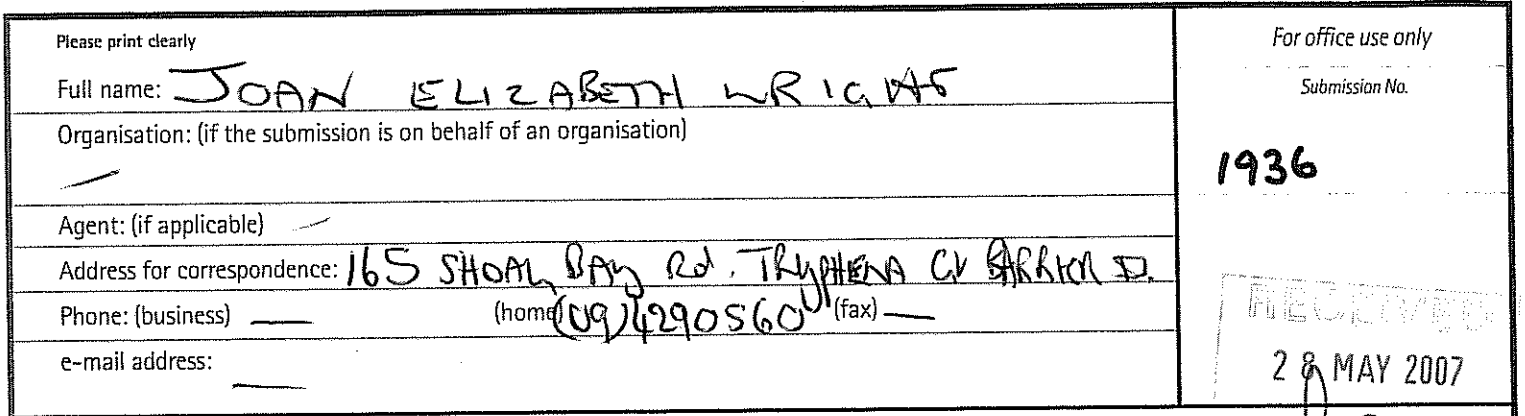 Please print clearly
Full name: JOAN ELIZABETH WRIGHT
Organisation: (if the submission is on behalf of an organisation)
—
Agent: (if applicable) —
Address for correspondence: 165 SHOAL BAY Rd. TRYPHENA Gt BARRIER I.
Phone: (business) — (home) (09) 4290560 (fax) —
e-mail address:
—
For office use only
Submission No.
1936
RECEIVED
28 MAY 2007